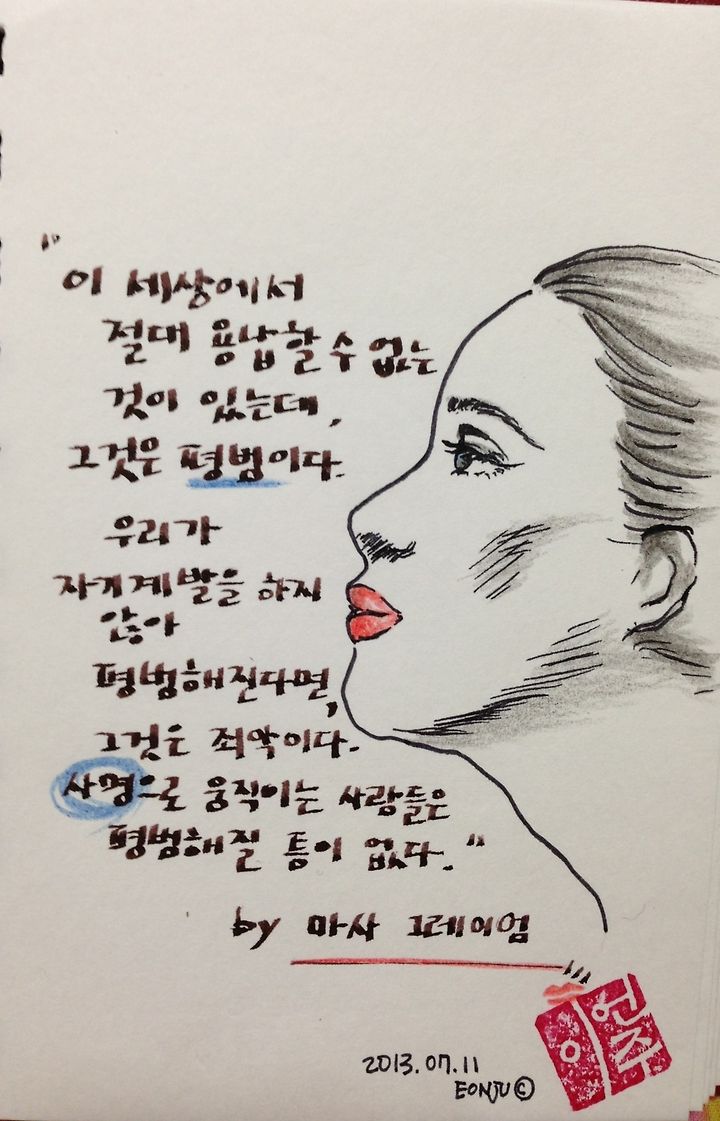 "이 세상에서
절대 용납할 수 없는
것이 있는데,
그것은 평범이다.
우리가
자기계발을 하지
않아
평범해진다면,
그것은 죄악이다.
사명으로 움직이는 사람들은
평범해질 틈이 없다."
by 마사 그레이엄
이언주
2013.07.11
EONJU ©